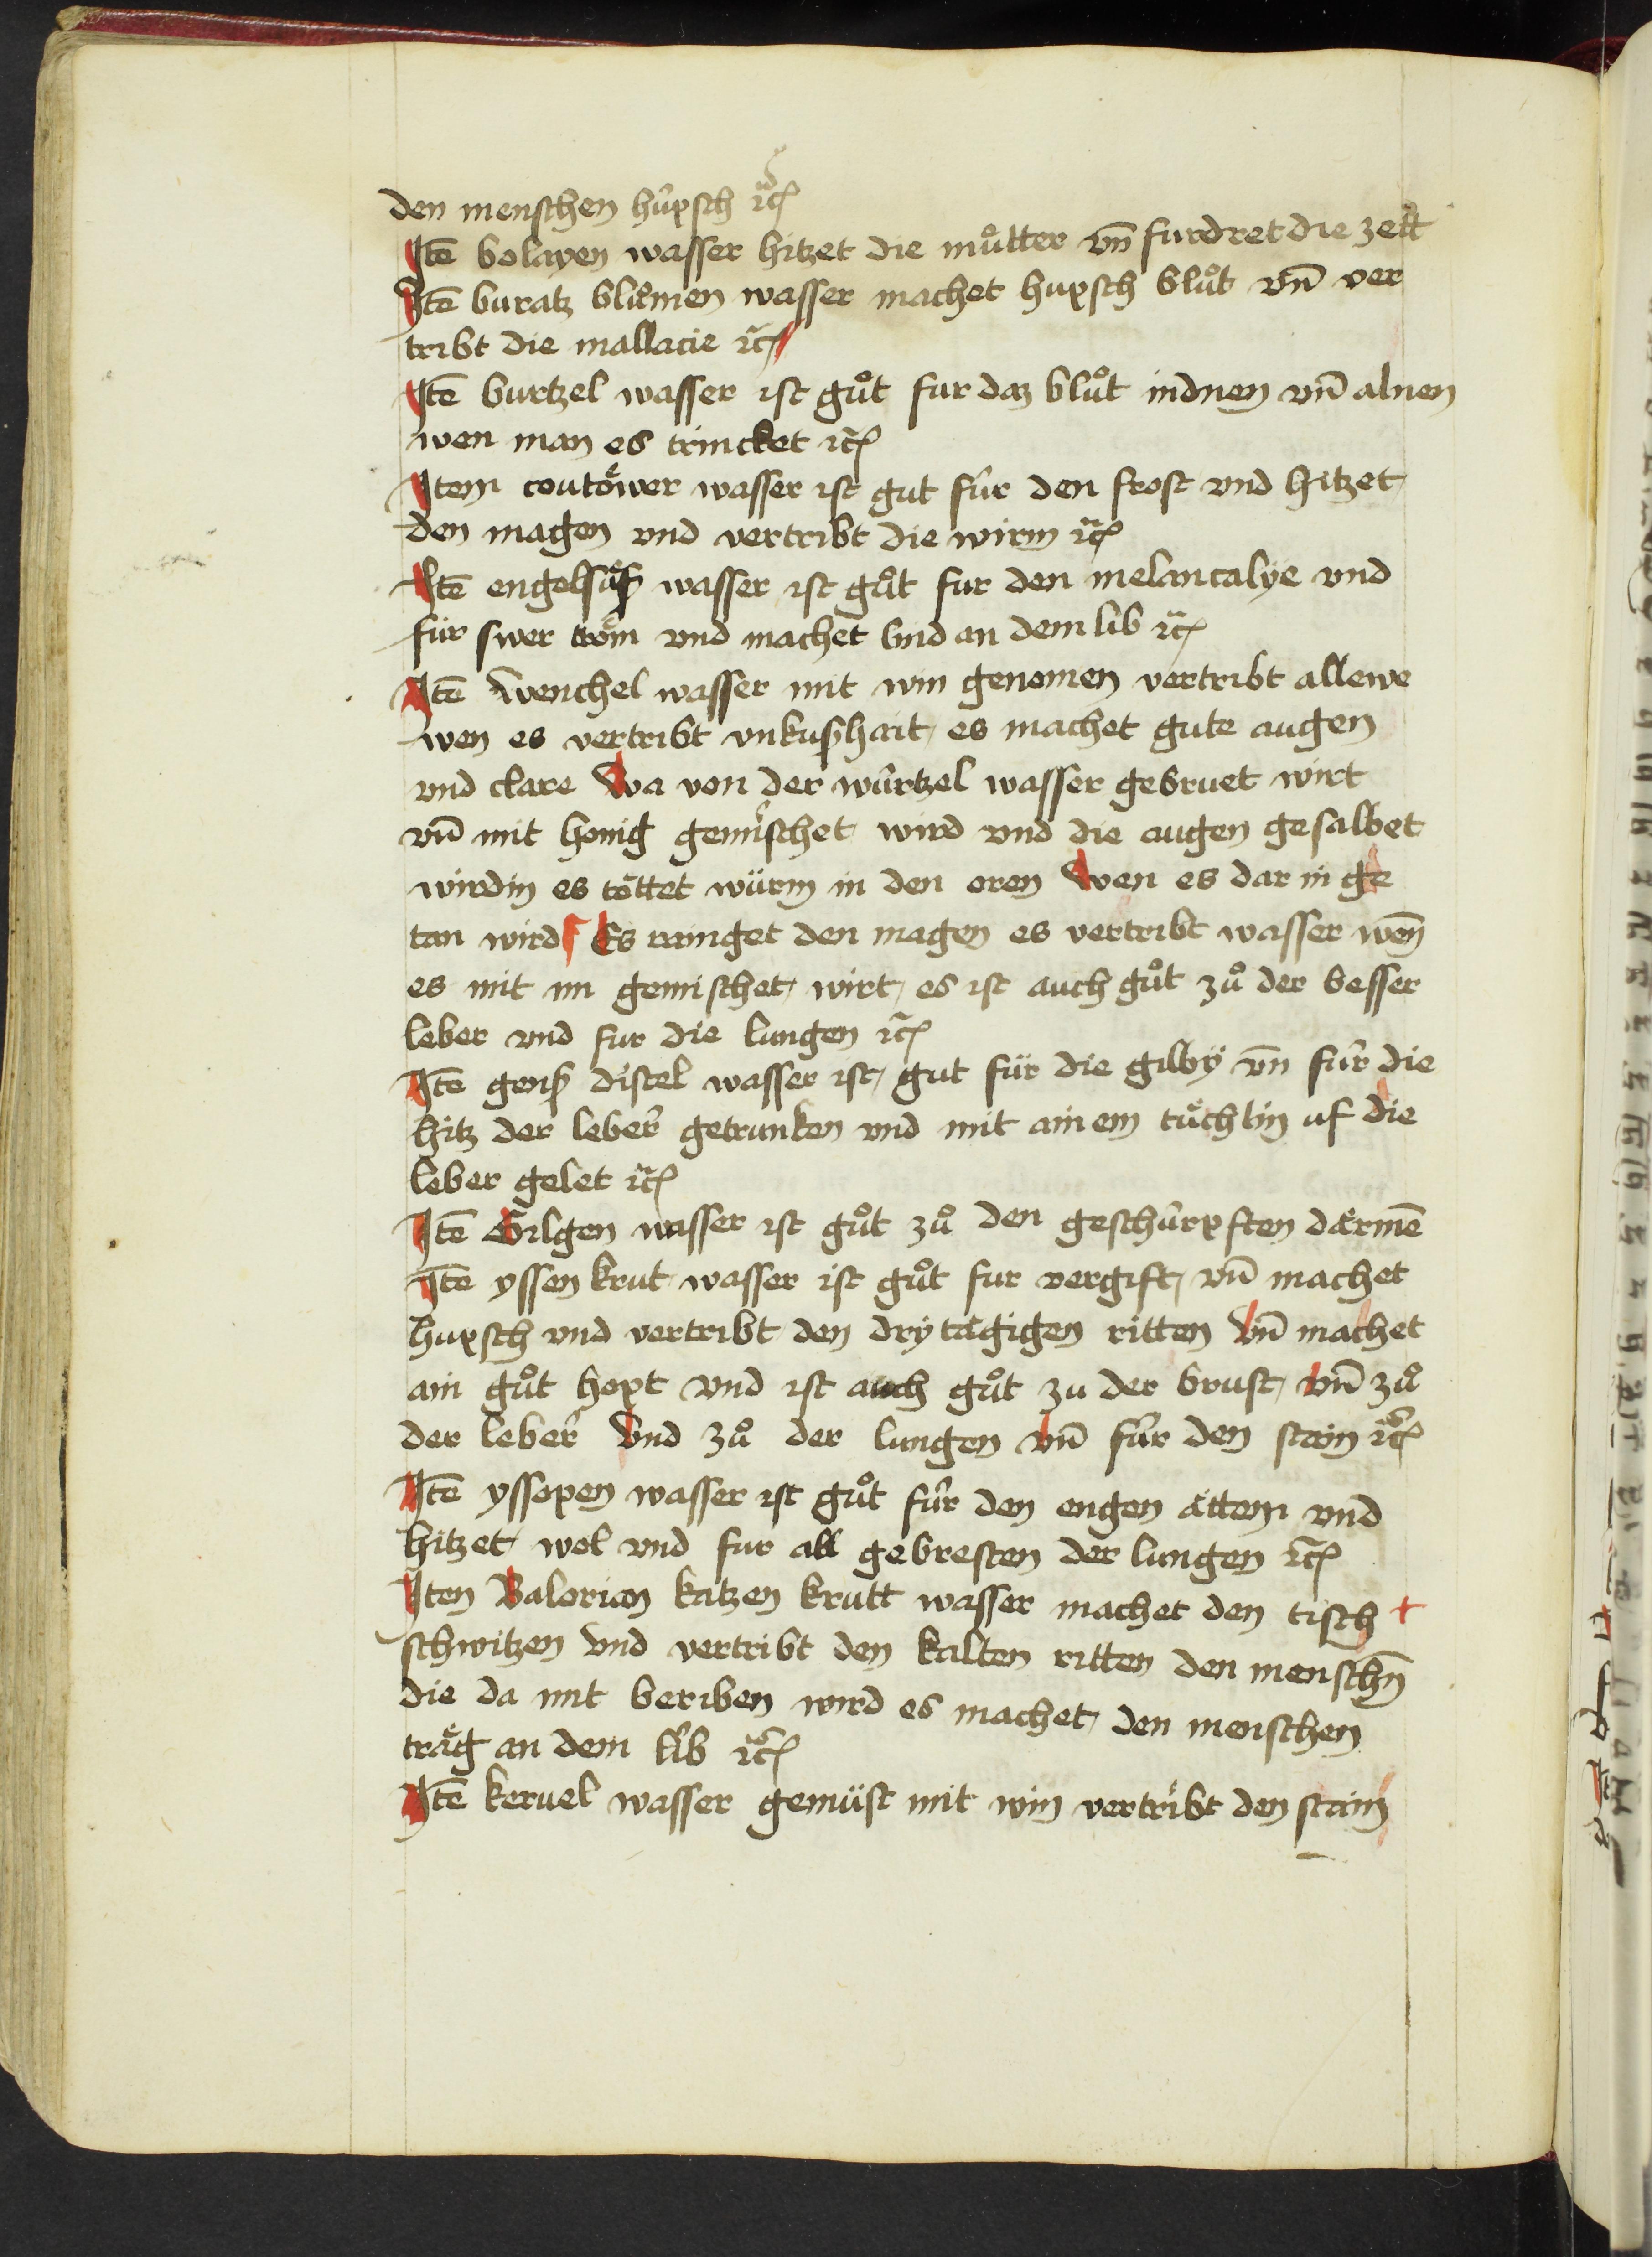 den menschen hüpsch ꝛcꝭ
Itē bolayen wasser hitzet die muͦtter vn̄ furdret die zeitt
Itē buratz bluͦmen wasser machet hupsch bluͦt vn̄ ver
tribt die mallacie ꝛcꝭ
Itē burtzel wasser ist guͦt fur daz bluͦt indnen vn̄ alnen
wen man es trincket ꝛcꝭ
Item coutoͤwer wasser ist gut für den frost vnd hitzet
den magen vnd vertribt die wirm ꝛcꝭ
Itē engelsuͤß wasser ist guͦt fur den melancalye vnd
für swer troͤm vnd machet lind an dem lib ꝛcꝭ
Itē wenchel wasser mit win genomen vertribt allewe
wen es vertribt vnkuschait es machet gute augen
vnd clare Wa von der würtzel wasser gebruet wirt
vn̄ mit honig gemischet wird vnd die augen gesalbet
wirdin es töttet würm in den oren Wen es dar in ge
tan wird Es rainget den magen es vertribt wasser wen̄
es mit im gemischet wirt es ist auch guͦt zuͦ der besser
leber vnd fur die lungen ꝛcꝭ
Itē genß distel wasser ist gut für die gilby vn̄ für die
hitz der leber getrunken vnd mit ainem tuͤchlin uf die
leber gelet ꝛcꝭ
Itē Gilgen wasser ist guͦt zuͦ den geschürpften därmē
Itē yssen krut wasser ist guͦt fur vergift vn̄ machet
hupsch vnd vertribt den drÿ tägigen ritten vn̄ machet
ain guͦt hopt vnd ist auch guͦt zu der brust vn̄ zuͦ
der leber vnd zuͦ der lungen vn̄ für den stain ꝛcꝭ
Itē yssopen wasser ist guͦt für den engen ättem vnd
hitzet wol vnd fur all gebresten der lungen ꝛcꝭ
Iten Valerian katzen krutt wasser machet den tisch +
schwitzen vnd vertribt den kalten ritten den menschn̄
die da mit beriben wird es machet den menschen
träg an dem lib ꝛcꝭ
Itē keruel wasser gemüst mit win vertribt den stain